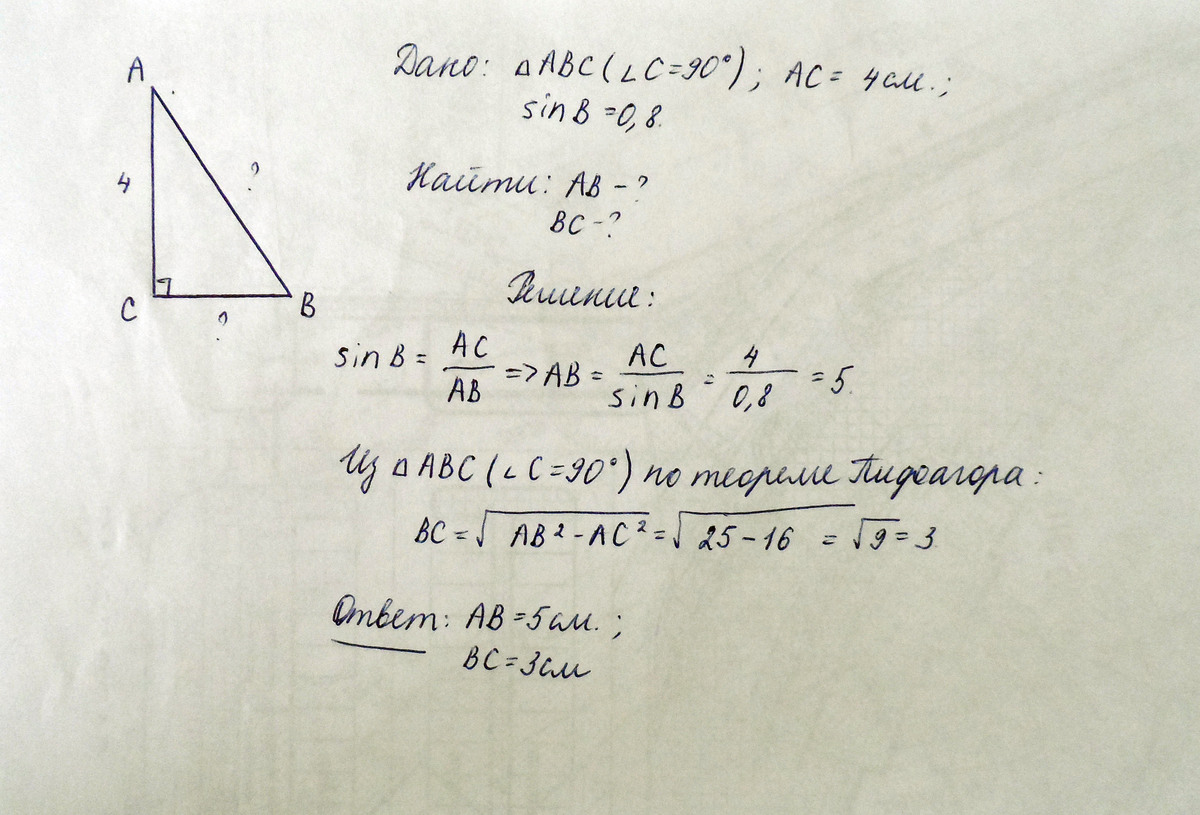 A
4
?
C
B
?
Дано: △ABC (∠C=90°); AC = 4см.;
sinB =0,8.
Найти: AB - ?
BC -?
Решение:
sinB = AC/AB => AB = AC/sinB = 4/0,8 = 5.
Из △ABC (∠C=90°) по теореме Пифоагора:
BC = √AB²-AC² = √25-16 = √9 = 3
Ответ: AB=5см.;
BC=3см